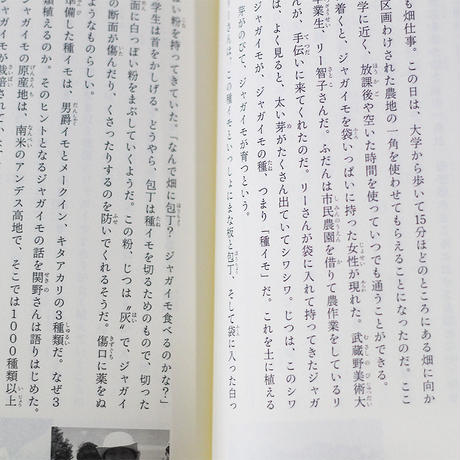 も畑仕事。この日は、大学から歩いて15分ほどのところにある畑に向か
区画わけされた農地の一角を使わせてもらえることになったのだ。ここ
学に近く、放課後や空いた時間を使っていつでも通うことができる。
着くと、ジャガイモを袋いっぱいに持った女性が現れた。武蔵野美術大
卒業生、リー智子さんだ。ふだんは市民農園を借りて農作業をしているリ
んが、手伝いに来てくれたのだ。リーさんが袋に入れて持ってきたジャガ
は、よく見ると、太い芽がたくさん出ていてシワシワ。じつは、このシワ
ジャガイモが、ジャガイモの種、つまり「種イモ」だ。これを土に植える
芽がのびて、ジャガイモが育つという。
ーさんは、この種イモといっしょにまな板と包丁、そして袋に入った白っ
ぽい粉を持ってきていた。「なんで畑に包丁？　ジャガイモ食べるのかな？」
学生は首をかしげる。どうやら、包丁は種イモを切るためのもので、切った
面に白っぽい粉をまぶしていくようだ。この粉、じつは〝灰〟で、ジャガイ
の断面が傷んだり、くさったりするのを防いでくれるそうだ。傷口に薬をぬ
ようなものらしい。
準備した種イモは、男爵イモとメークイン、キタアカリの3種類だ。なぜ3
類植えるのか。そのヒントとなるジャガイモの話を関野さんは語りはじめた。
ャガイモの原産地は、南米のアンデス高地で、そこでは1000種類以上
ャガイモが栽培されてい